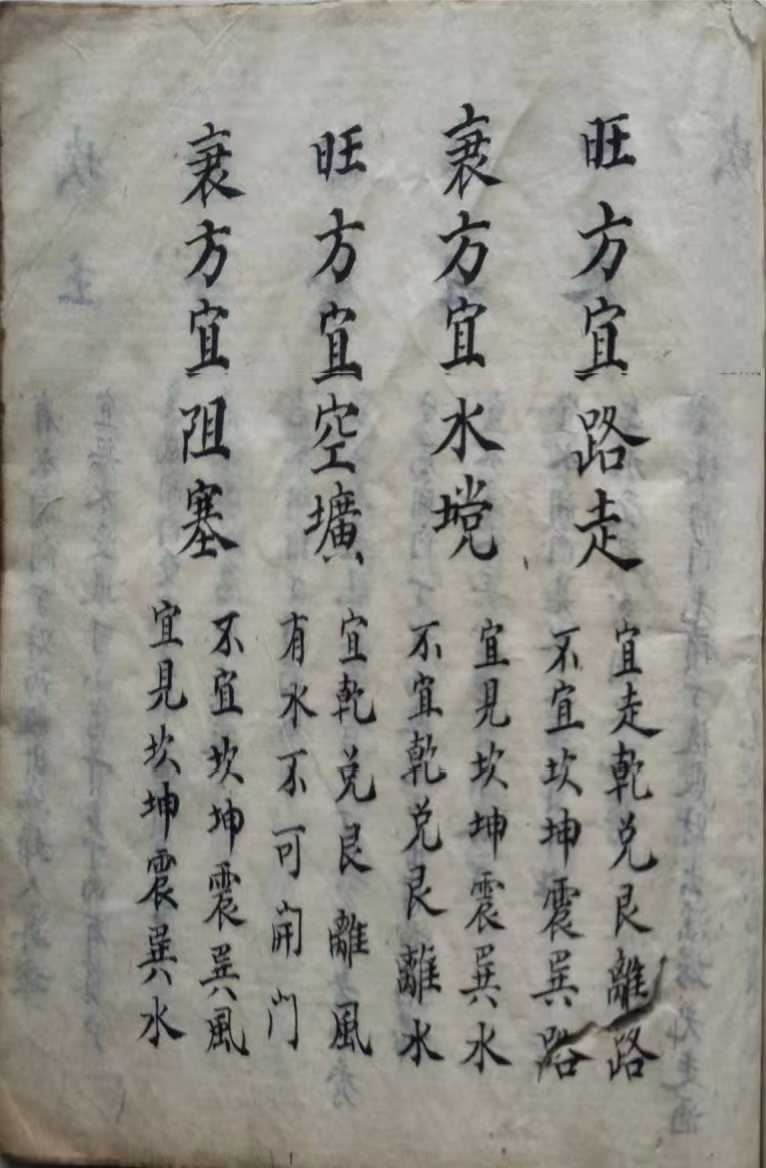 旺方宜路走
宜走乾兑艮離路
不宜坎坤震巽路
衰方宜水𡋾
宜見坎坤震巽水
不宜乾兑艮離水
旺方宜空壙
宜乾兑艮離風
有水不可開門
衰方宜阻塞
不宜坎坤震巽風
宜見坎坤震巽水